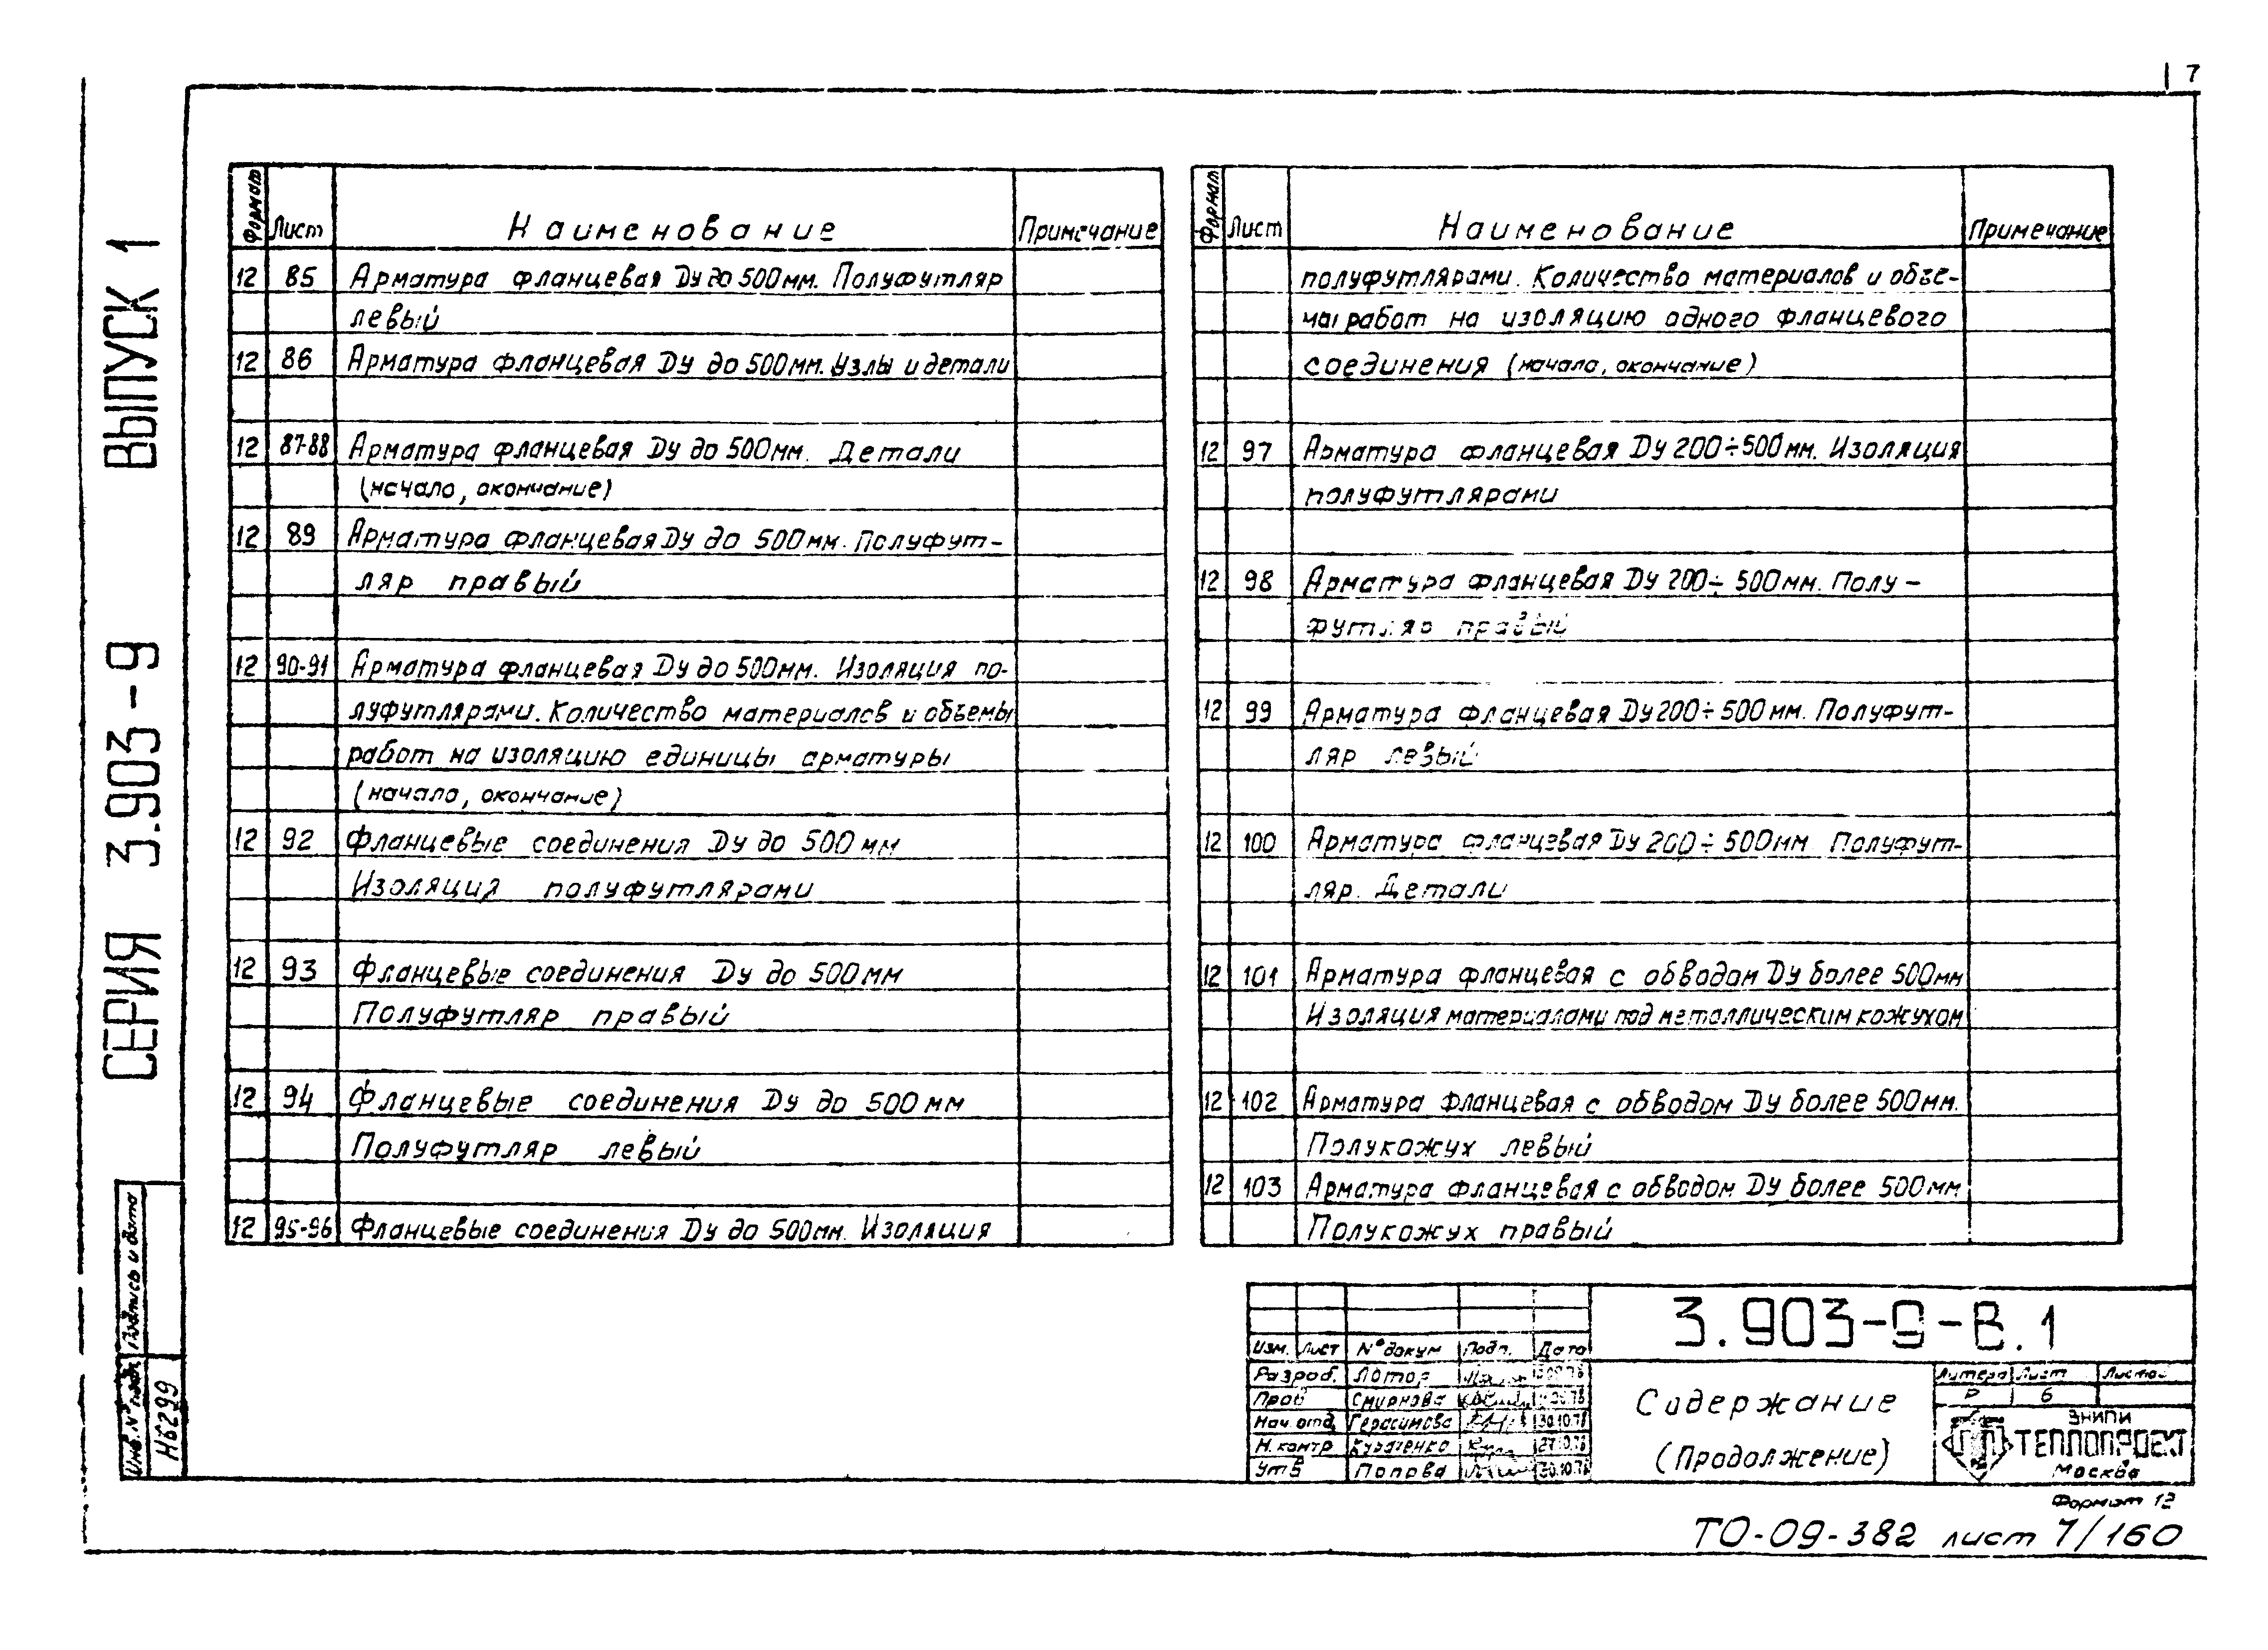 7
СЕРИЯ 3.903-9 ВЫПУСК 1
Формат Лист Наименование Примечание
12 85 Арматура фланцевая Ду до 500мм. Полуфутляр
левый
12 86 Арматура фланцевая Ду до 500мм. Узлы и детали
12 87-88 Арматура фланцевая Ду до 500мм. Детали
(начало, окончание)
12 89 Арматура фланцевая Ду до 500мм. Полуфут-
ляр правый
12 90-91 Арматура фланцевая Ду до 500мм. Изоляция по-
луфутлярами. Количество материалов и объемы
работ на изоляцию единицы арматуры
(начало, окончание)
12 92 Фланцевые соединения Ду до 500 мм
Изоляция полуфутлярами
12 93 Фланцевые соединения Ду до 500мм
Полуфутляр правый
12 94 Фланцевые соединения Ду до 500мм
Полуфутляр левый
12 95-96 Фланцевые соединения Ду до 500мм. Изоляция
Формат Лист Наименование Примечание
полуфутлярами. Количество материалов и объе-
мы работ на изоляцию одного фланцевого
соединения (начало, окончание)
12 97 Арматура фланцевая Ду 200÷500мм. Изоляция
полуфутлярами
12 98 Арматура фланцевая Ду 200÷500мм. Полу-
футляр правый
12 99 Арматура фланцевая Ду 200÷500мм. Полуфут-
ляр левый
12 100 Арматура фланцевая Ду 200÷500мм. Полуфут-
ляр. Детали
12 101 Арматура фланцевая с обводом Ду более 500мм
Изоляция материалами под металлическим кожухом
12 102 Арматура фланцевая с обводом Ду более 500мм.
Полукожух левый
12 103 Арматура фланцевая с обводом Ду более 500мм
Полукожух правый
Инв. № подл. Подпись и дата
Н6299
3.903-9-В.1
Изм. Лист № докум Подп. Дата
Разраб. Лотор
Пров Смирнова
Нач. отд. Герасимова 30.10.78
Н. контр 27.10.78
Утв Попова 30.10.78
Содержание
(Продолжение)
Литера Лист Листов
Р 6
ВНИПИ
ТЕПЛОПРОЕКТ
Москва
Формат 12
ТО-09-382 лист 7/160